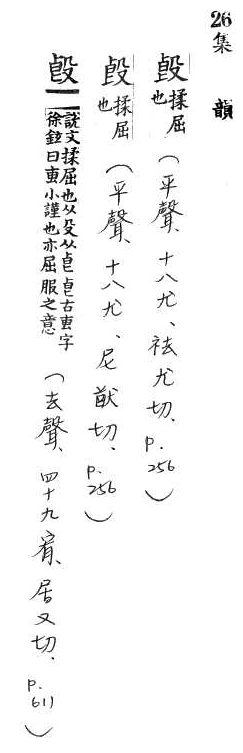 26集 韻
𣪘 揉屈
也
(平聲、十八尤、祛尤切、p.256)
𣪘 揉屈
也
(平聲、十八尤、尼猷切、p.256)
𣪘
說文揉屈也从殳从皀皀古叀字
徐鉉曰叀小謹也亦屈服之意
(去聲、四十九宥、居又切、p.611)